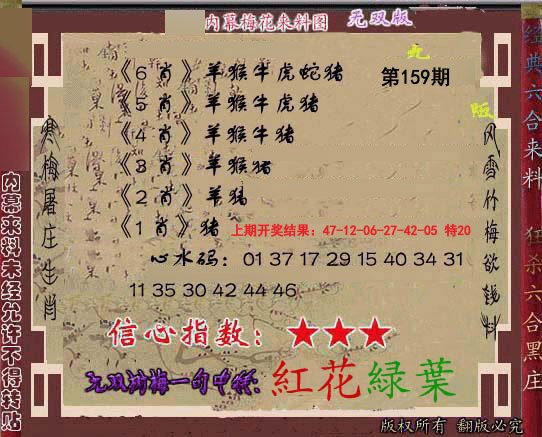 内幕梅花来料图 无双版
《6肖》羊猴牛虎蛇猪 第159期
《5肖》羊猴牛虎猪
《4肖》羊猴牛猪
《3肖》羊猴猪
《2肖》羊猪
《1肖》猪 上期开奖结果：47-12-06-27-42-05 特20
心水码：01 37 17 29 15 40 34 31
11 35 30 42 44 46
信心指数：★★★
无双
寒梅屠庄生肖
风雪竹梅欲钱料
内幕来料未经允许不得转贴
经典六合来料 狂杀六合黑庄
一句中特：紅花緑葉
版权所有 翻版必究